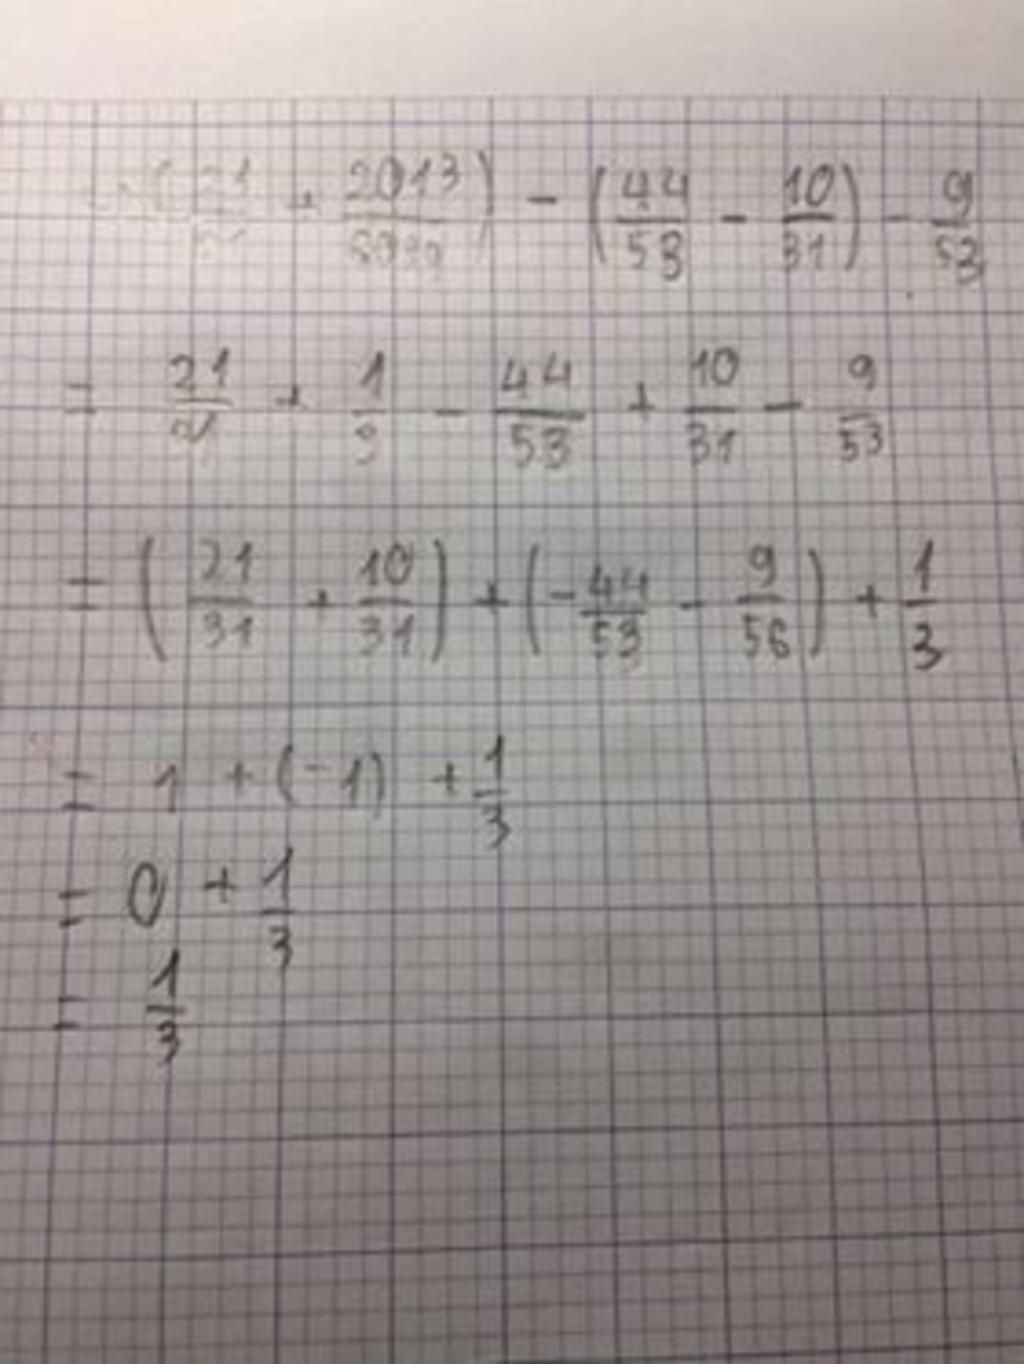 (21/31 + 2013/6039) - (44/53 - 10/31) - 9/53
= 21/31 + 1/3 - 44/53 + 10/31 - 9/53
= (21/31 + 10/31) + (-44/53 - 9/56) + 1/3
= 1 + (-1) + 1/3
= 0 + 1/3
= 1/3